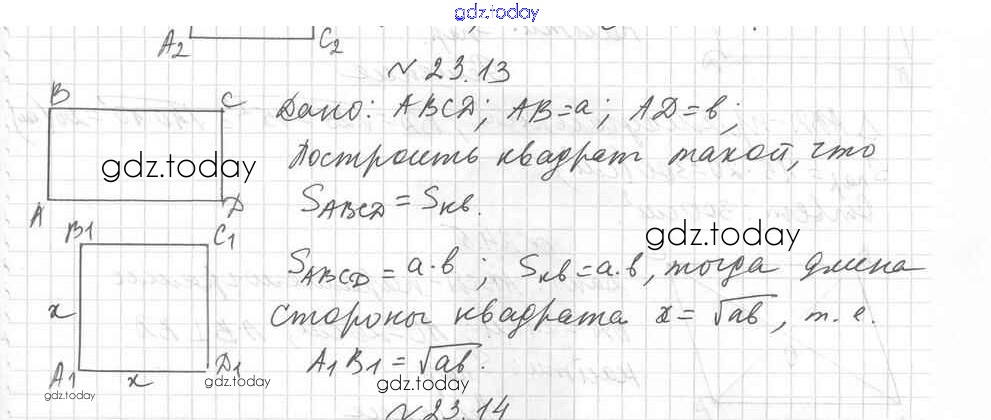 gdz.today
A2 C2
№ 23.13
B C
Дано: ABCD; AB=a; AD=b;
gdz.today
Построить квадрат такой, что
A D
S_ABCD = S_кв.
B1 C1
gdz.today
S_ABCD = a·b; S_кв=a·b, тогда длина
x
стороны квадрата x = √ab, т.е.
A1 x D1
A1B1 = √ab.
gdz.today
gdz.today
gdz.today
№ 23.14